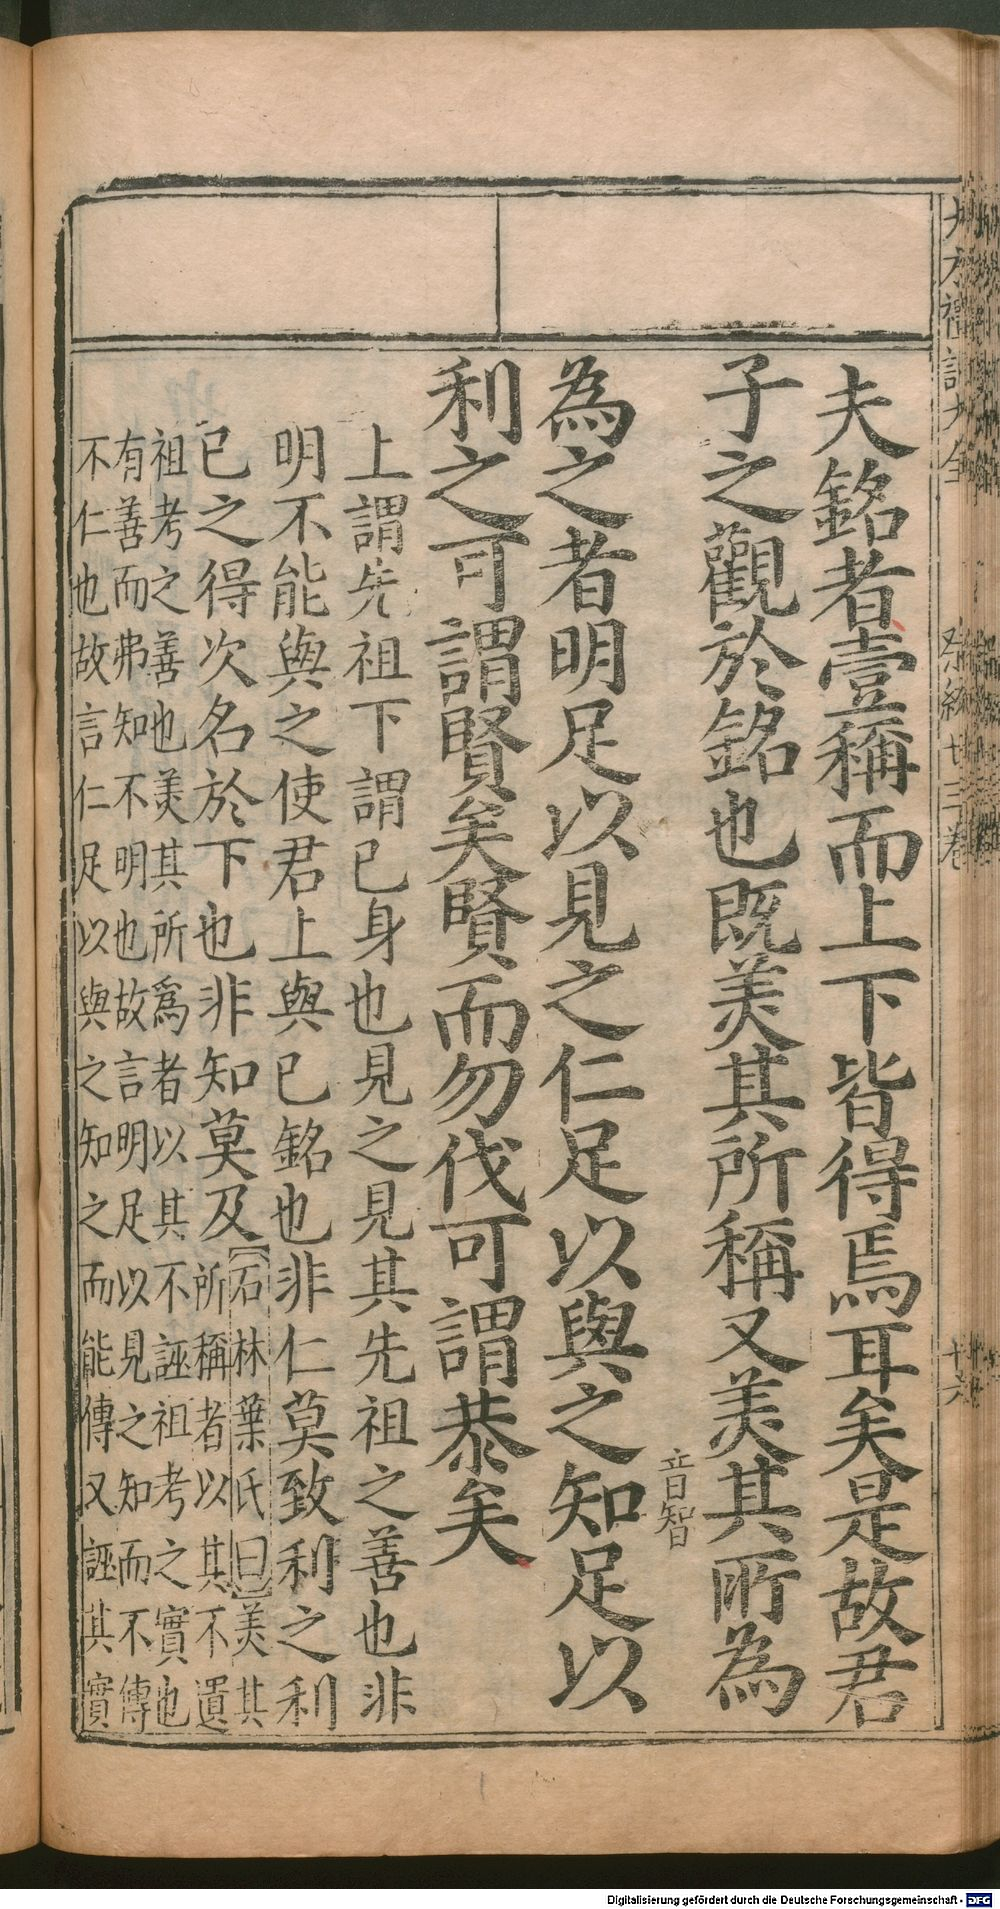 大方禮記大全　祭統廿三卷　十六
夫銘者壹稱而上下皆得焉耳矣是故君
子之觀於銘也既美其所稱又美其所為
音智
為之者明足以見之仁足以與之知足以
利之可謂賢矣賢而勿伐可謂恭矣
上謂先祖下謂已身也見之見其先祖之善也非
明不能與之使君上與已銘也非仁莫致利之利
已之得次名於下也非知莫及
【石林葉氏曰】美其
所稱者以其不遺
祖考之善也美其所爲者以其不誣祖考之實也
有善而弗知不明也故言明足以見之知而不傳
不仁也故言仁足以與之知之而能傳又誣其實
Digitalisierung gefördert durch die Deutsche Forschungsgemeinschaft - DFG